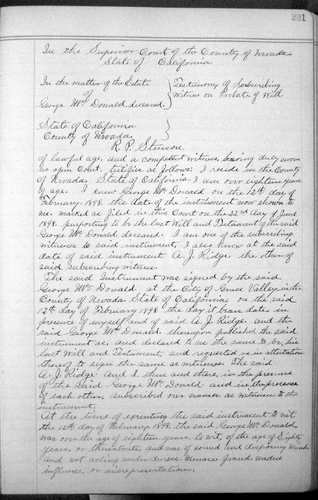 231
In the Superior Court of the County of Nevada
State of California
In the matter of the Estate } Testimony of Subscribing
of } Witness on Probate of Will
George McDonald deceased
State of California }
County of Nevada }
R. P. Stinson
of lawful age and a competent witness being duly sworn
in open Court, testifies as follows: I reside in the County
of Nevada State of California I am over eighteen years
of age. I knew George McDonald on the 12th day of
February 1898. the date of the instrument now shown to
me. marked as filed in this Court on the 22nd day of June
1898. purporting to be the last Will and Testament of the said
George McDonald deceased. I am one of the subscribing
witnesses to said instrument, I also knew at the said
date of said instrument A. J. Ridge, the other of
said subscribing witness.
The said instrument was signed by the said
George McDonald at the City of Grass Valley in the
County of Nevada State of California on the said
12th day of February 1898 the day it bears date in
presence of myself and of said A. J. Ridge. and the
said George McDonald thereupon published the said
instrument as and declared to us the same to be his
last Will and Testament, and requested us in attestation
thereof to sign the same as witnesses. The said
A. J. Ridge and I then and there, in the presence
of the said George McDonald and in the presence
of each other, subscribed our names as witnesses to the
instrument.
At the time of executing the said instrument to wit
the 12th day of February 1898. the said George McDonald
was over the age of eighteen years to wit, of the age of Eighty
years or thereabouts, and was of sound and disposing mind
and not acting under duress menace fraud undue
influence or misrepresentations.